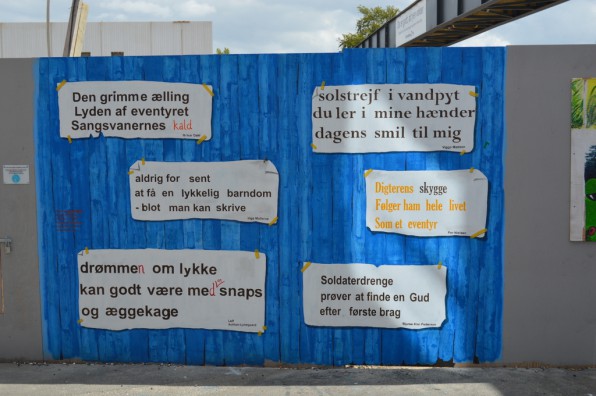 Den grimme ælling
Lyden af eventyret
Sangsvanernes kald
solstrejf i vandpyt
du ler i mine hænder
dagens smil til mig
aldrig for sent
at få en lykkelig barndom
- blot man kan skrive
Digterens skygge
Følger ham hele livet
Som et eventyr
drømmen om lykke
kan godt være med snaps
og æggekage
Soldaterdrenge
prøver at finde en Gud
efter første brag